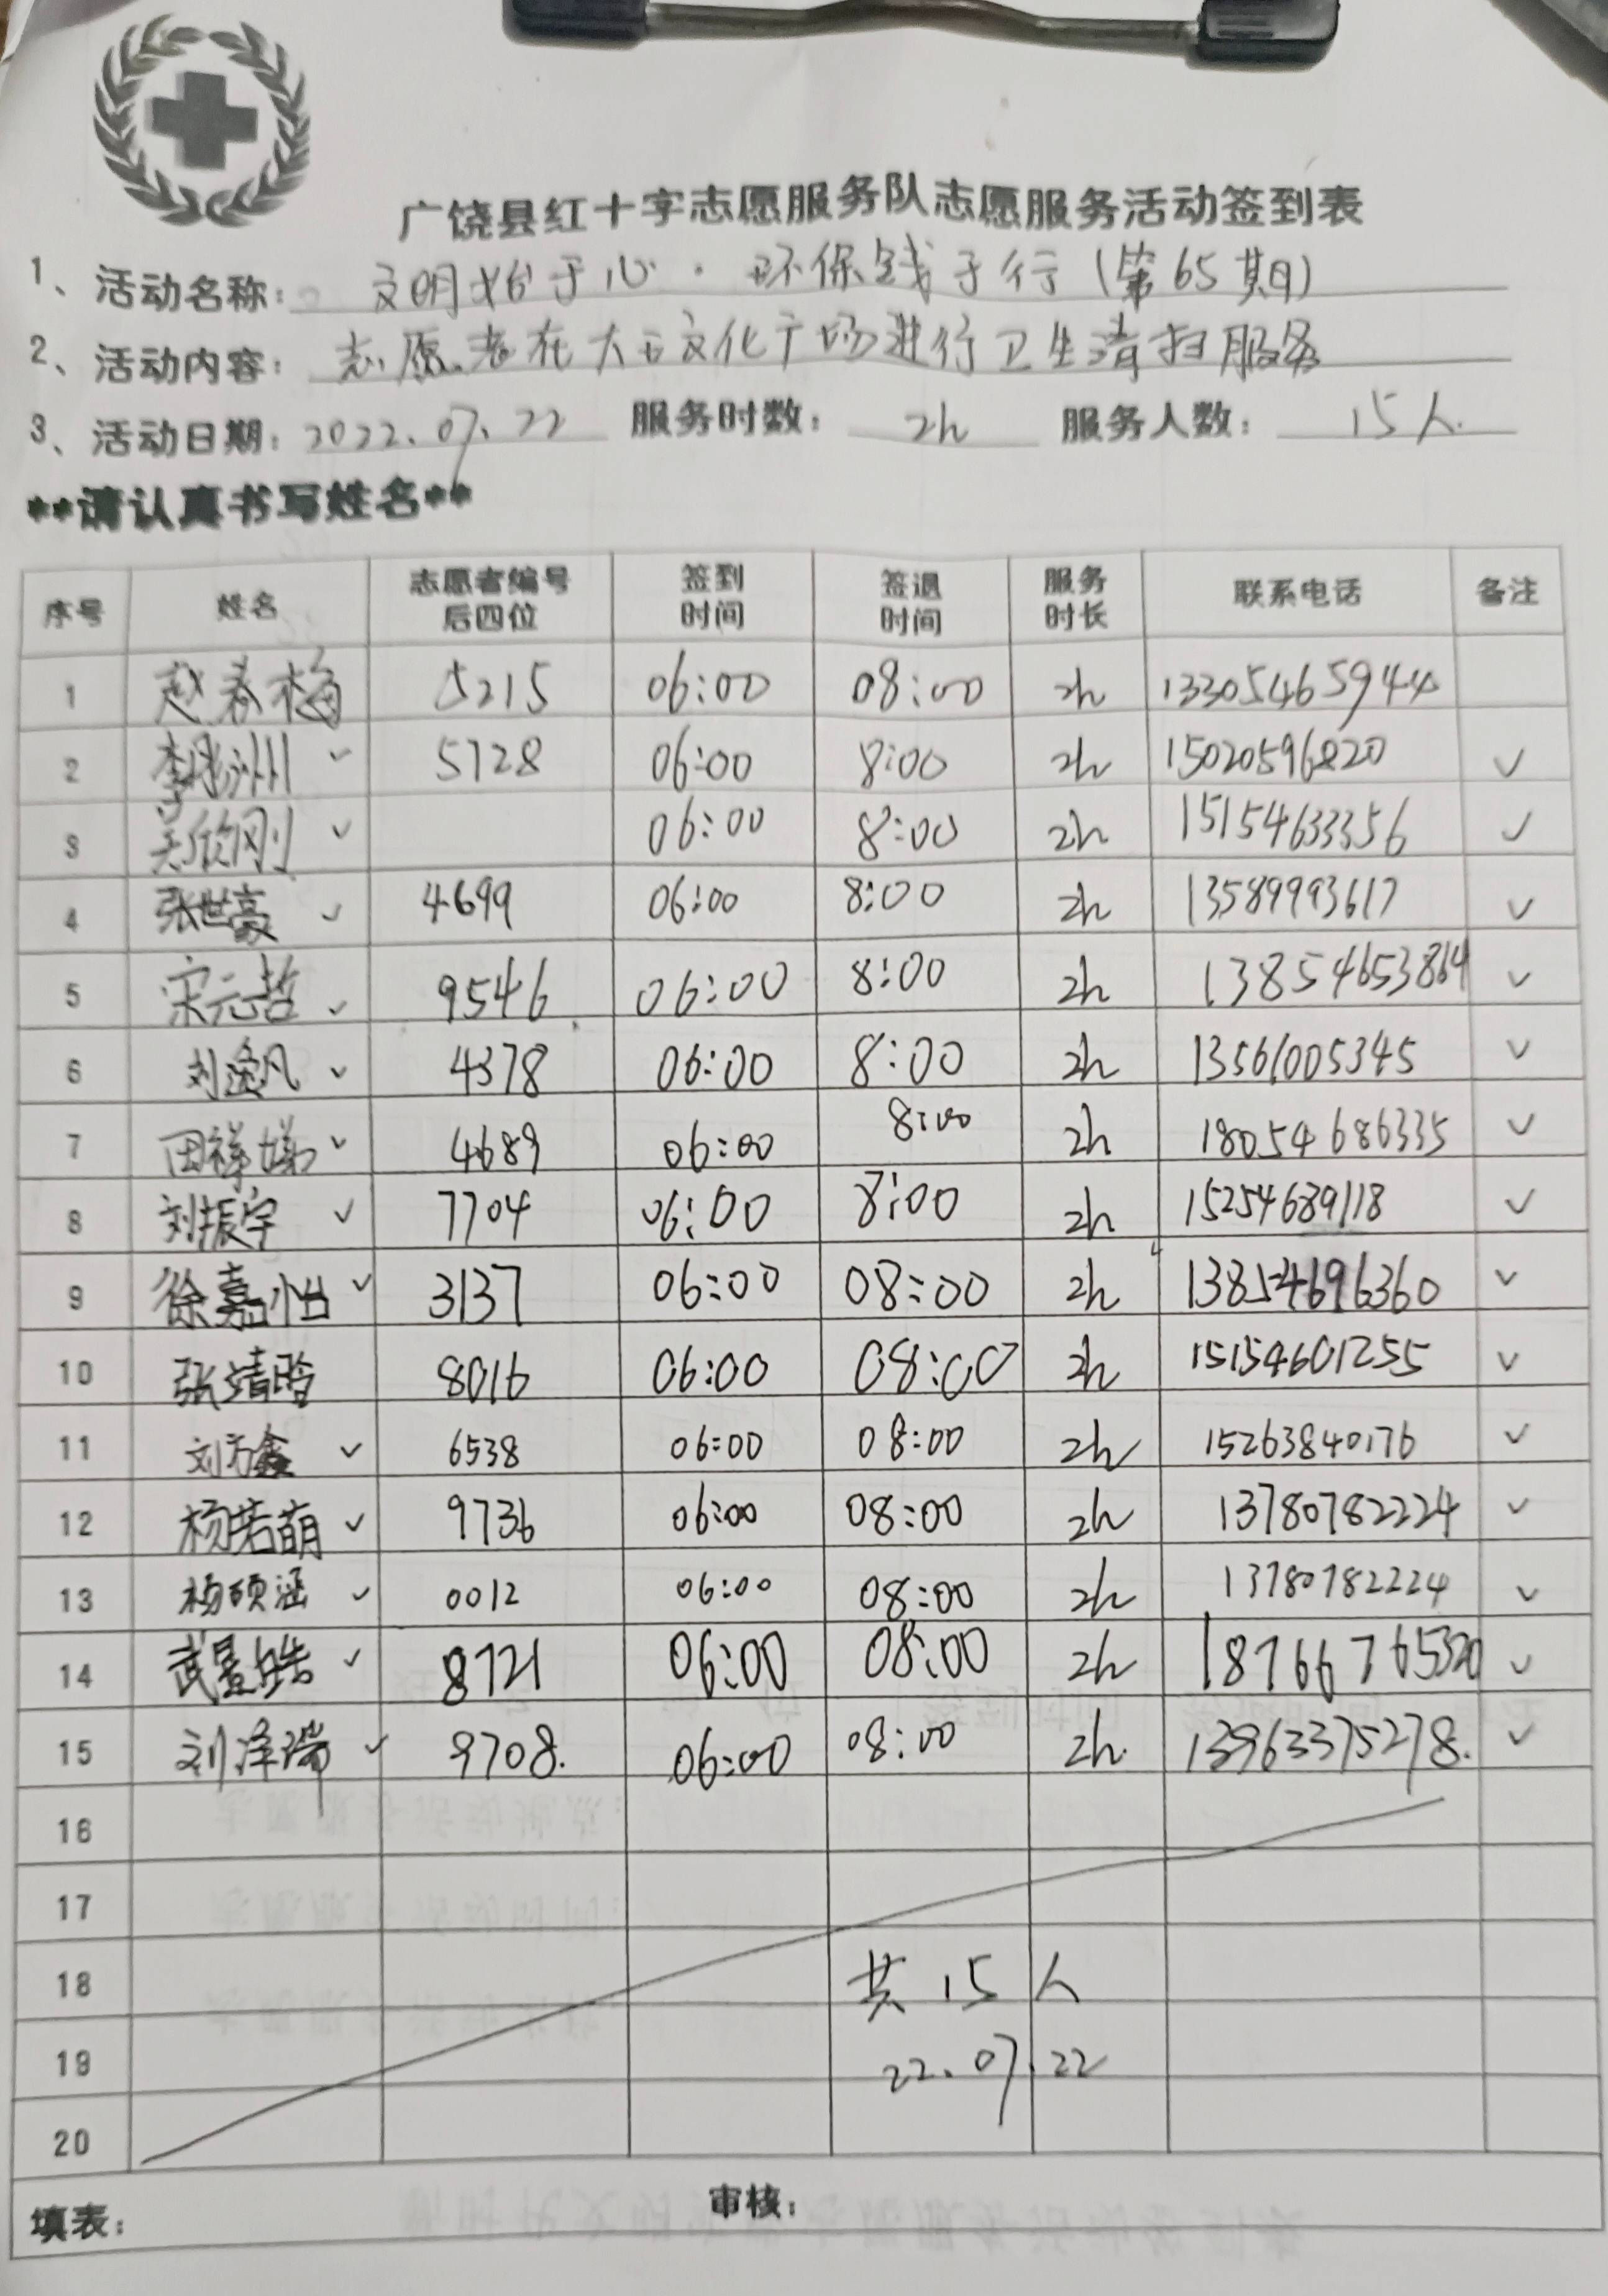 广饶县红十字志愿服务队志愿服务活动签到表
1、活动名称: 文明始于心·环保践于行(第65期)
2、活动内容: 志愿者在大王文化广场进行卫生清扫服务
3、活动日期: 2022.07.22 服务时数: 2h 服务人数: 15人.
**请认真书写姓名**
序号 姓名 志愿者编号后四位 签到时间 签退时间 服务时长 联系电话 备注
1 赵春梅 5215 06:00 08:00 2h 13305465944
2 ✓ 5728 06:00 8:00 2h 15020596820 ✓
3 ✓ 06:00 8:00 2h 15154633356 ✓
4 张世豪 ✓ 4699 06:00 8:00 2h 13589993617 ✓
5 宋元哲 ✓ 9546 06:00 8:00 2h 13854653864 ✓
6 刘逸凡 ✓ 4378 06:00 8:00 2h 13561005345 ✓
7 田祥娣 ✓ 4689 06:00 8:00 2h 18054686335 ✓
8 刘振宇 ✓ 7704 06:00 8:00 2h 15254689118 ✓
9 徐嘉怡 ✓ 3137 06:00 08:00 2h 13854696360 ✓
10 张靖晗 8016 06:00 08:00 2h 15154601255 ✓
11 刘方鑫 ✓ 6538 06:00 08:00 2h 15263840176 ✓
12 杨若萌 ✓ 9736 06:00 08:00 2h 13780782224 ✓
13 杨硕涵 ✓ 0012 06:00 08:00 2h 13780782224 ✓
14 武昱皓 ✓ 8721 06:00 08:00 2h 18766765320 ✓
15 刘泽瑞 ✓ 9708. 06:00 08:00 2h. 13963375278. ✓
16
17
18 共15人
19 22.07.22
20
填表: 审核: